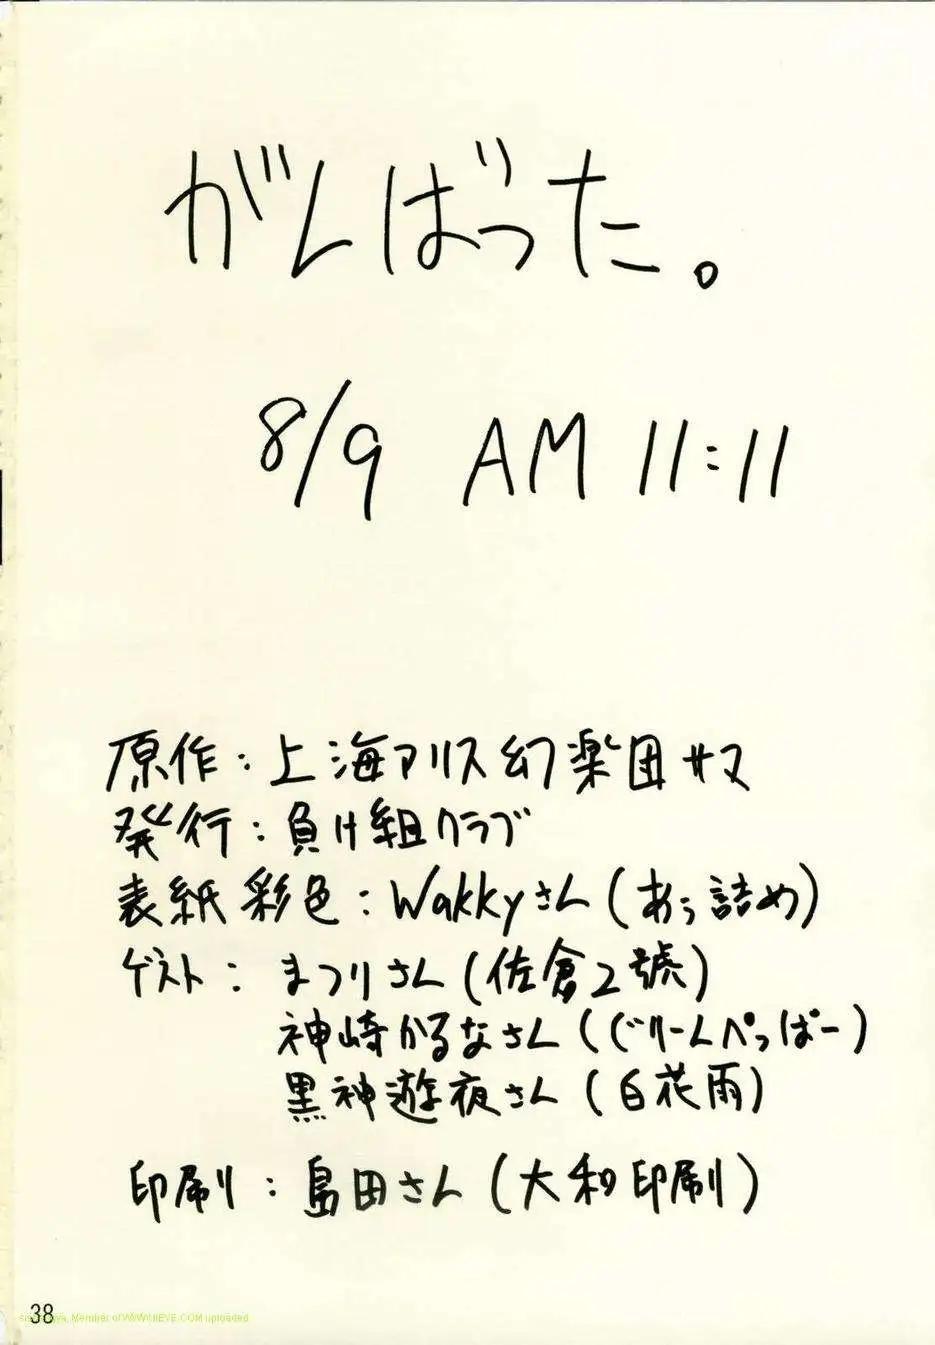 がんばった。
8/9 AM 11:11
原作:上海アリス幻楽団サマ
発行:負け組クラブ
表紙彩色:Wakkyさん(あぅ詰め)
ゲスト: まつりさん(佐倉2號)
神崎かるなさん(ぐりーんぺっぱー)
黒神遊夜さん(白花雨)
印刷:島田さん(大和印刷)
38
Member of uploaded